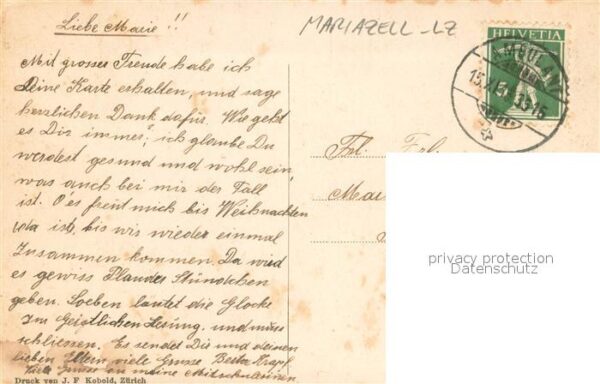 Liebe Marie !!
Mit grosser Freude habe ich
Deine Karte erhalten, und sage
herzlichen Dank dafür. Wie geht
es Dir immer, ich glaube Du
werdest gesund und wohl sein,
was auch bei mir der Fall
ist. O es freut mich bis Weihnachten
da ist, bis wir wieder einmal
Zusammen kommen. Da wird
es gewiss Plauder Stündchen
geben. Soeben läutet die Glocke
zur Geistlichen Lesung, und muss
schliessen. Es sendet Dir und deinen
lieben Eltern viele Grüsse Berta
Viele Grüsse an meine Mitschülerinnen.
Druck von J. F. Kobold, Zürich
MARIAZELL - LZ
HELVETIA
AMBULANT
Frl.
privacy protection
Datenschutz